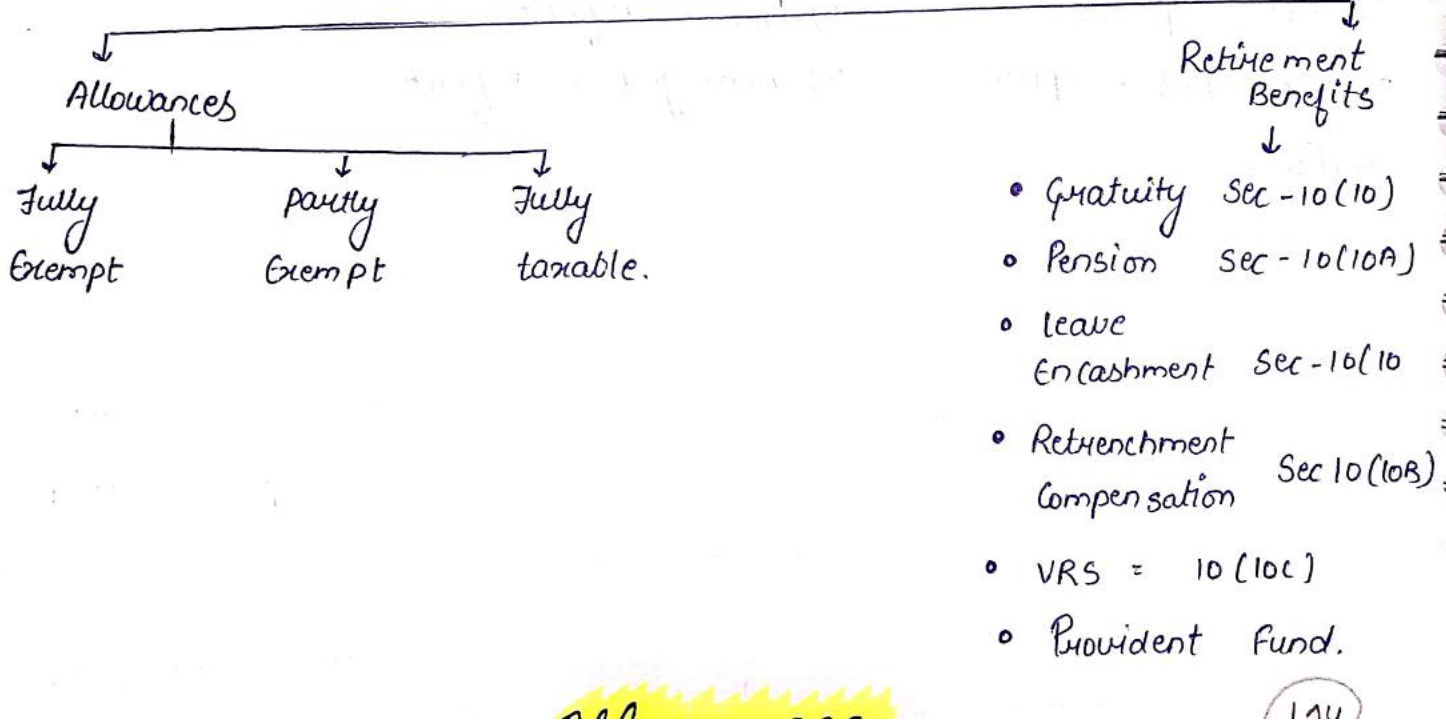 Allowances
Fully
Exempt
Partly
Exempt
Fully
taxable.
Retirement
Benefits
• Gratuity Sec - 10(10)
• Pension Sec - 10(10A)
• Leave
Encashment Sec - 10(10
• Retrenchment
Compensation Sec 10(10B)
• VRS = 10(10C)
• Provident Fund.